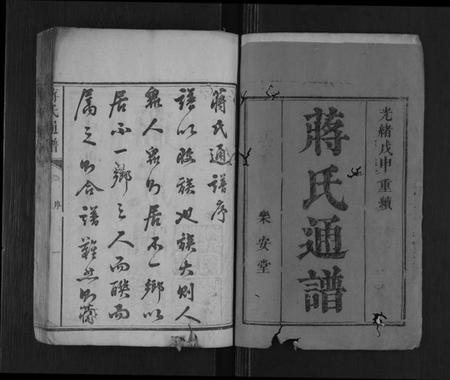 光緒戊申重鐫
蔣氏通譜
樂安堂
蔣氏通譜序
譜以聯族也族大則人
衆人衆則居不一鄉以
居不一鄉之人而聯而
屬之則合譜難然則蔣
蔣氏通譜
序